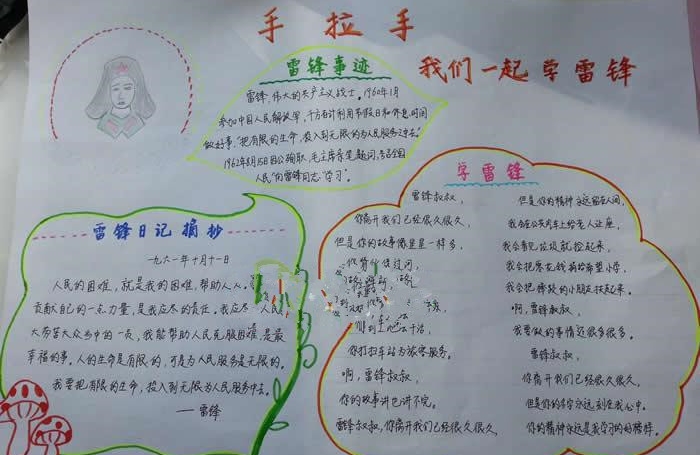 手拉手
我们一起学雷锋
雷锋事迹
雷锋:伟大的共产主义战士。1960年1月
参加中国人民解放军,千方百计利用节假日和休息时间
做好事。"把有限的生命,投入到无限的为人民服务之去。"
1962年8月15日因公殉职,毛主席亲笔题词,号召全国
人民"向雷锋同志学习"。
雷锋日记摘抄
一九六一年十月十一日
人民的困难,就是我的困难,帮助人
贡献自己的一点力量,是我应尽的责任。我应尽一人民
大劳苦大众当中的一员,我能帮助人民克服困难,是最
幸福的事。人的生命是有限的,可是为人民服务是无限的。
我要把有限的生命,投入到无限为人民服务中去。
——雷锋
学雷锋
雷锋叔叔,
你离开我们已经很久很久,
但是你的故事像星星一样多,
你打扫车站为旅客服务。
啊,雷锋叔叔,
你的故事讲也讲不完。
雷锋叔叔,你离开我们已经很久很久,
但是你的精神永远留在人间,
我会在公共汽车上给老人让座,
我会看见垃圾就捡起来,
我会把零花钱捐给希望小学,
我会把摔跤的小朋友扶起来。
啊,雷锋叔叔,
我要做的事情还很多很多。
雷锋叔叔,
你离开我们已经很久很久,
但是你的名字永远刻在我心中。
你的精神永远是我学习的好榜样。